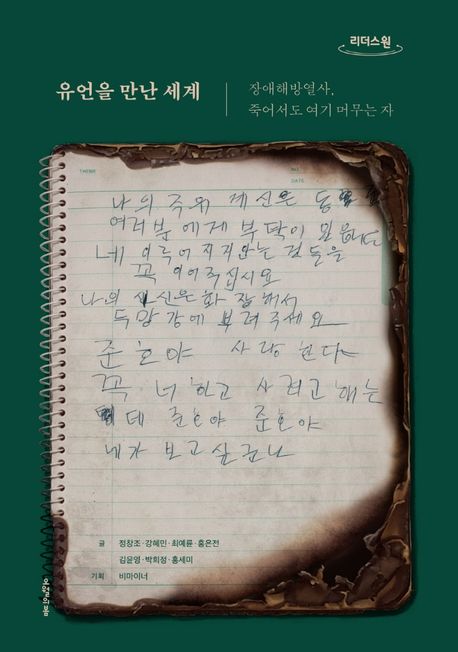 리더스원
유언을 만난 세계
장애해방열사,
죽어서도 여기 머무는 자
THEME
NO.
DATE
나의 주위 계신은
여러분에게 부탁이 있읍니다
네 이루어 지지안는 것들을
꼭 이어주십시요
나의 시신은 화장해서
두망강에 뿌려주세요
준호야 사랑 한다
꼭 너하고 사려고 해는
데 준호야 준호야
내가 보고싶군나
글 정창조·강혜민·최예륜·홍은전
김윤영·박희정·홍세미
기획 비마이너
오월의봄